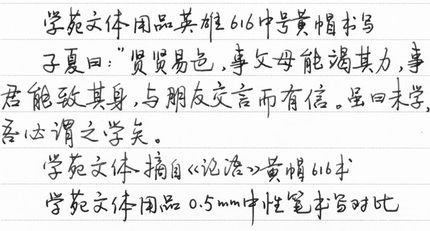 学苑文体用品英雄616中号黄帽书写
子夏曰：“贤贤易色，事父母能竭其力，事
君能致其身，与朋友交言而有信。虽曰未学，
吾必谓之学矣。
学苑文体 摘自《论语》黄帽616书
学苑文体用品 0.5mm中性笔书写对比